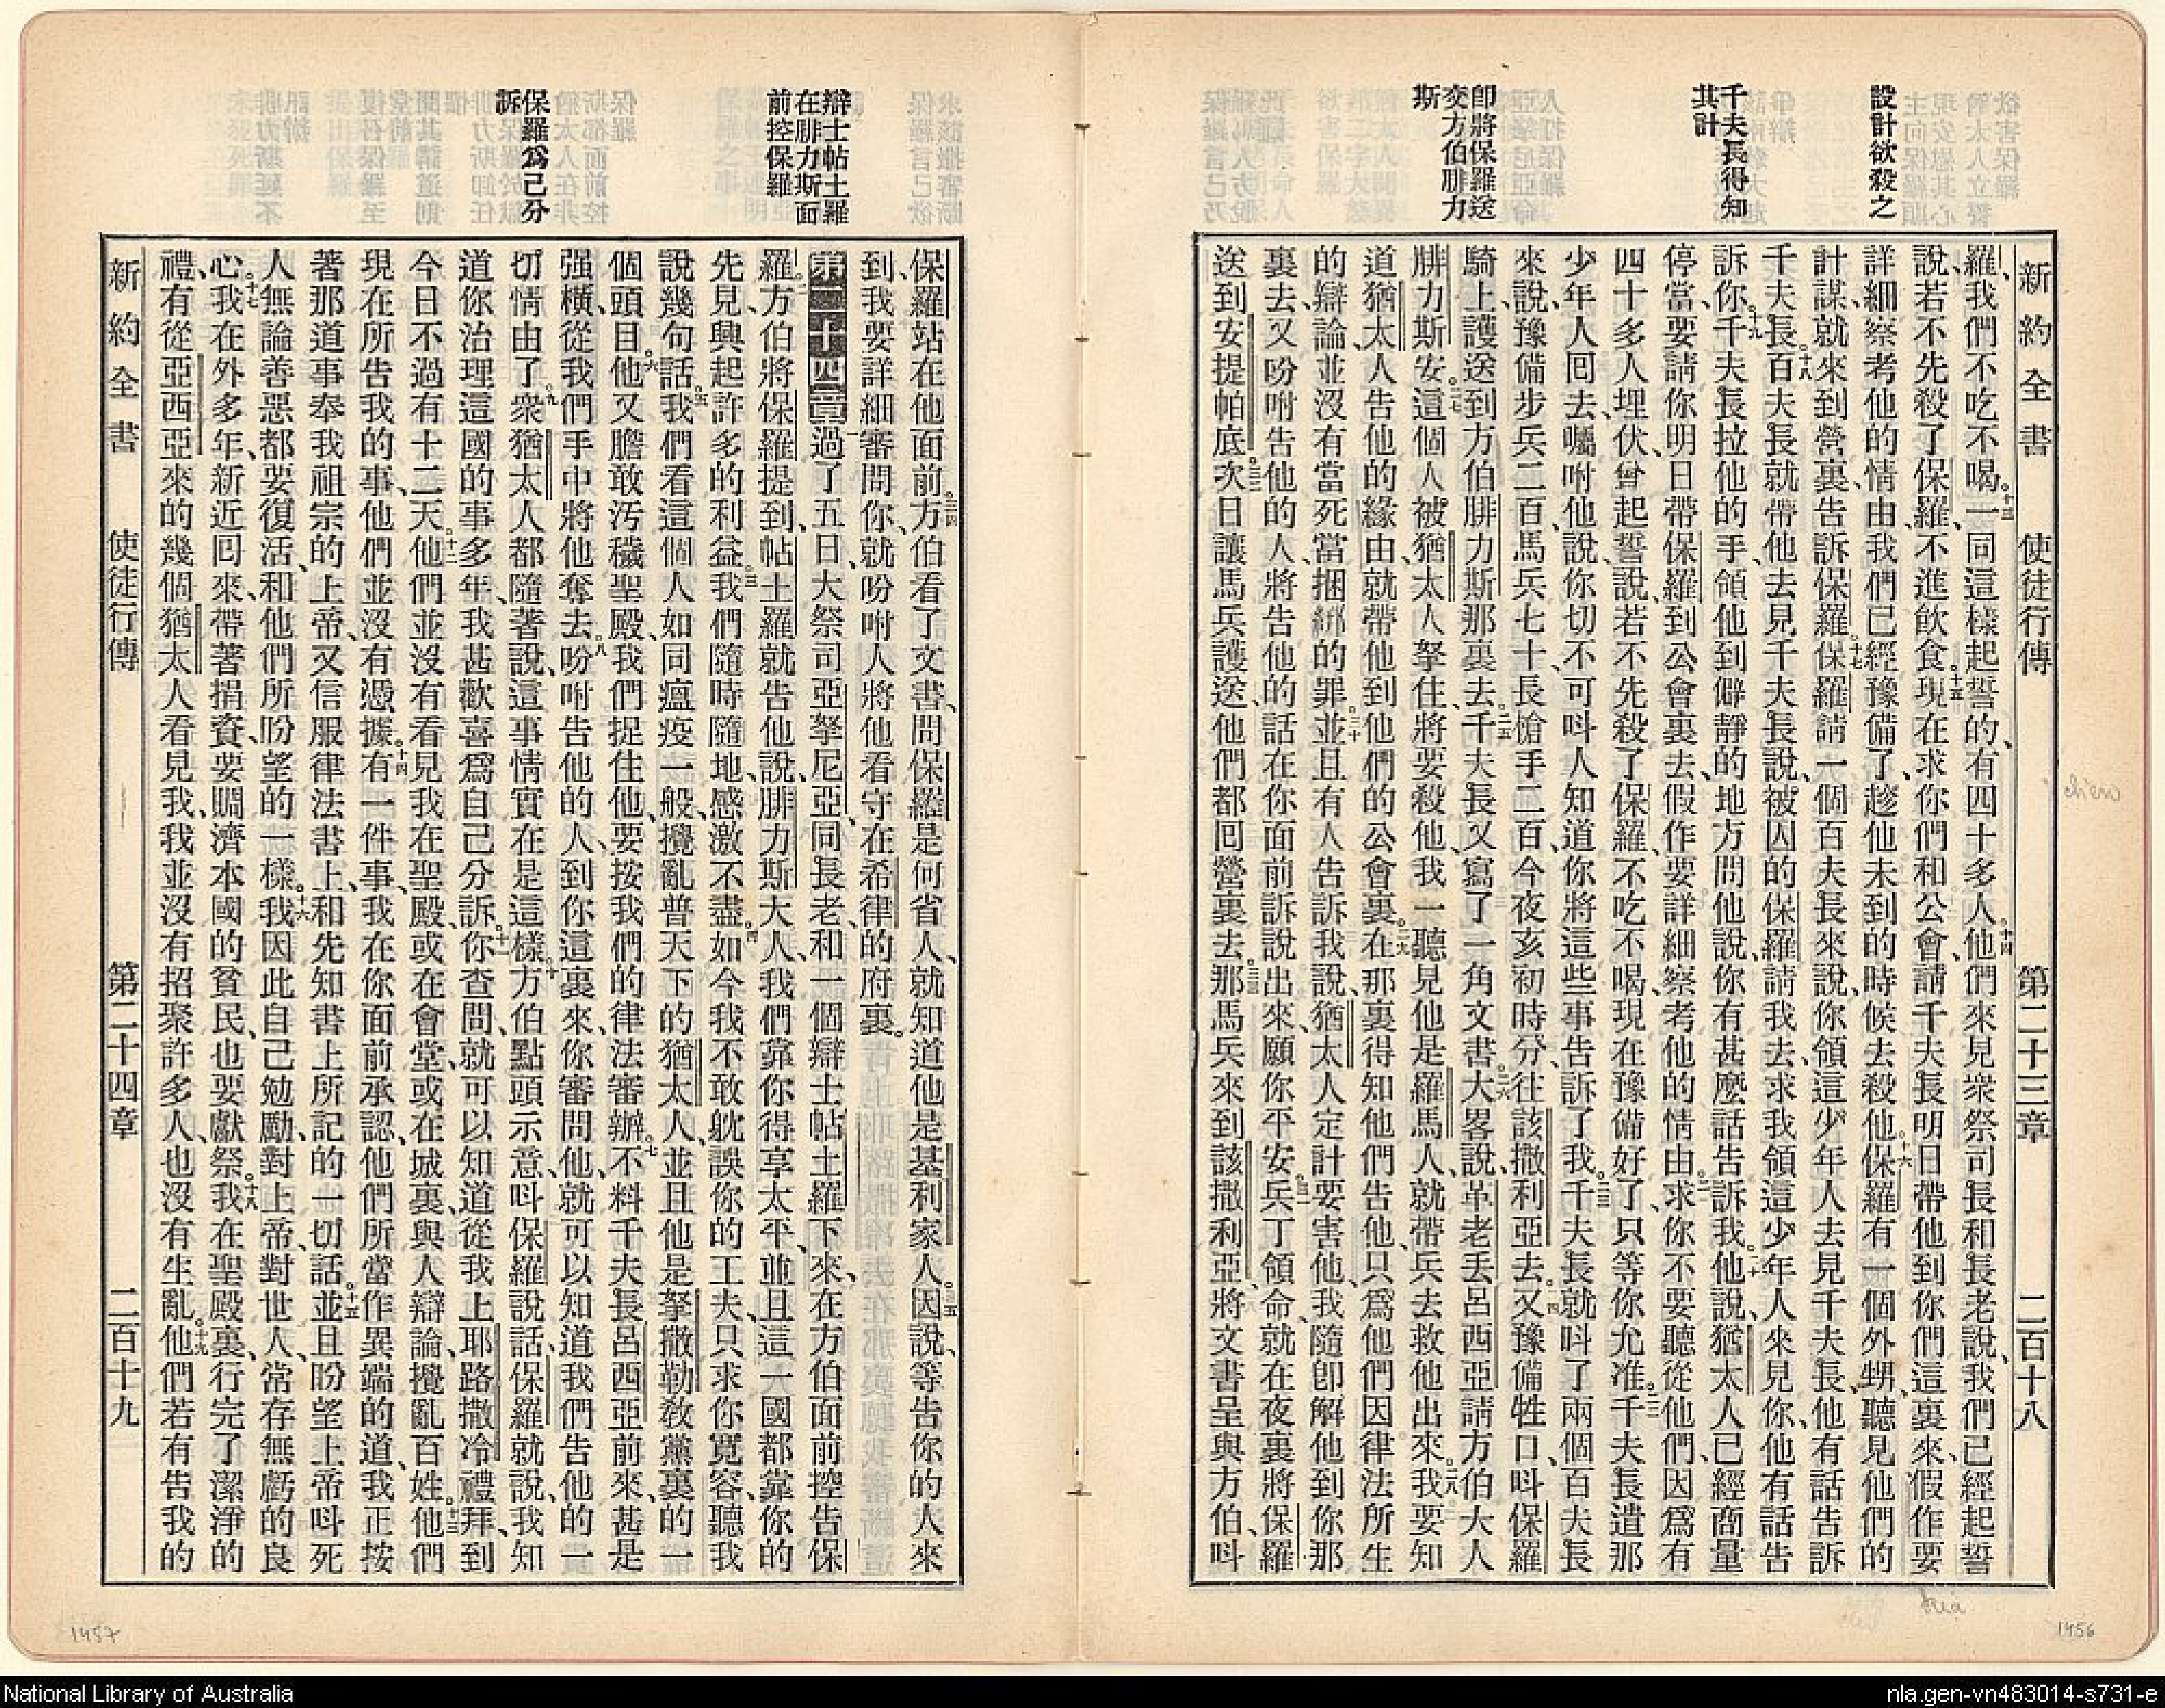 設計欲殺之
千夫長得知
其計
卽將保羅送
交方伯腓力
斯
新約全書 使徒行傳 第二十三章 二百十八
羅、我們不吃不喝。十三一同這樣起誓的、有四十多人。十四他們來見衆祭司長和長老說、我們已經起誓
說、若不先殺了保羅、不進飲食。十五現在求你們和公會、請千夫長明日帶他到你們這裏來、假作要
詳細察考他的情由、我們已經豫備了、趁他未到的時候去殺他。十六保羅有一個外甥、聽見他們的
計謀、就來到營裏、告訴保羅。十七保羅請一個百夫長來說、你領這少年人去見千夫長、他有話告訴
千夫長。十八百夫長就帶他去見千夫長說、被囚的保羅請我去、求我領這少年人來見你、他有話告
訴你。十九千夫長拉他的手、領他到僻靜的地方問他說、你有甚麽話告訴我。二十他說、猶太人已經商量
停當、要請你明日帶保羅到公會裏去、假作要詳細察考他的情由。二一求你不要聽從他們、因爲有
四十多人埋伏、曾起誓說、若不先殺了保羅、不吃不喝、現在豫備好了、只等你允准。二二千夫長遣那
少年人囘去、囑咐他說、你切不可呌人知道你將這些事告訴了我。二三千夫長就呌了兩個百夫長
來說、豫備步兵二百、馬兵七十、長槍手二百、今夜亥初時分、往該撒利亞去。二四又豫備牲口、呌保羅
騎上、護送到方伯腓力斯那裏去。二五千夫長又寫了一角文書。二六大畧說、革老丟呂西亞請方伯大人
腓力斯安。二七這個人被猶太人拏住、將要殺他、我一聽見他是羅馬人、就帶兵去救他出來。二八我要知
道猶太人告他的緣由、就帶他到他們的公會裏。二九在那裏得知他們告他、只爲他們因律法所生
的辯論、並沒有當死當捆綁的罪。三十並且有人告訴我說、猶太人定計要害他、我隨卽解他到你那
裏去、又吩咐告他的人、將告他的話在你面前訴說出來、願你平安。三一兵丁領命、就在夜裏將保羅
送到安提帕底。三二次日讓馬兵護送、他們都囘營裏去。三三那馬兵來到該撒利亞、將文書呈與方伯、呌
辯士帖土羅
在腓力斯面
前控保羅
保羅爲己分
訴
保羅站在他面前。三四方伯看了文書、問保羅是何省人、就知道他是基利家人。三五因說、等告你的人來
到、我要詳細審問你、就吩咐人將他看守在希律的府裏。
第二十四章 過了五日、大祭司亞拏尼亞、同長老、和一個辯士帖土羅下來、在方伯面前控告保
羅。二方伯將保羅提到、帖土羅就告他說、腓力斯大人、我們靠你得享太平、並且這一國都靠你的
先見、興起許多的利益。三我們隨時隨地、感激不盡。四如今我不敢躭誤你的工夫、只求你寬容、聽我
說幾句話。五我們看這個人如同瘟疫一般、攪亂普天下的猶太人、並且他是拏撒勒敎黨裏的一
個頭目。六他又膽敢汚穢聖殿、我們捉住他、要按我們的律法審辦。七不料千夫長呂西亞前來、甚是
强橫、從我們手中將他奪去。八吩咐告他的人、到你這裏來、你審問他、就可以知道我們告他的一
切情由了。九衆猶太人都隨著說、這事情實在是這樣。十方伯點頭示意、呌保羅說話、保羅就說、我知
道你治理這國的事多年、我甚歡喜爲自己分訴。十一你查問、就可以知道從我上耶路撒冷禮拜、到
今日不過有十二天。十二他們並沒有看見我在聖殿、或在會堂、或在城裏、與人辯論、攪亂百姓。十三他們
現在所告我的事、他們並沒有憑據。十四有一件事、我在你面前承認、他們所當作異端的道、我正按
著那道事奉我祖宗的上帝、又信服律法書上、和先知書上所記的一切話。十五並且盼望上帝呌死
人無論善惡都要復活、和他們所盼望的一樣。十六我因此自己勉勵、對上帝、對世人、常存無虧的良
心。十七我在外多年、新近囘來、帶著捐資、要賙濟本國的貧民、也要獻祭。十八我在聖殿裏、行完了潔淨的
禮、有從亞西亞來的幾個猶太人看見我、我並沒有招聚許多人、也沒有生亂。十九他們若有告我的
新約全書 使徒行傳 第二十四章 二百十九
chien
hua
1457
1456
National Library of Australia
nla.gen-vn483014-s731-e